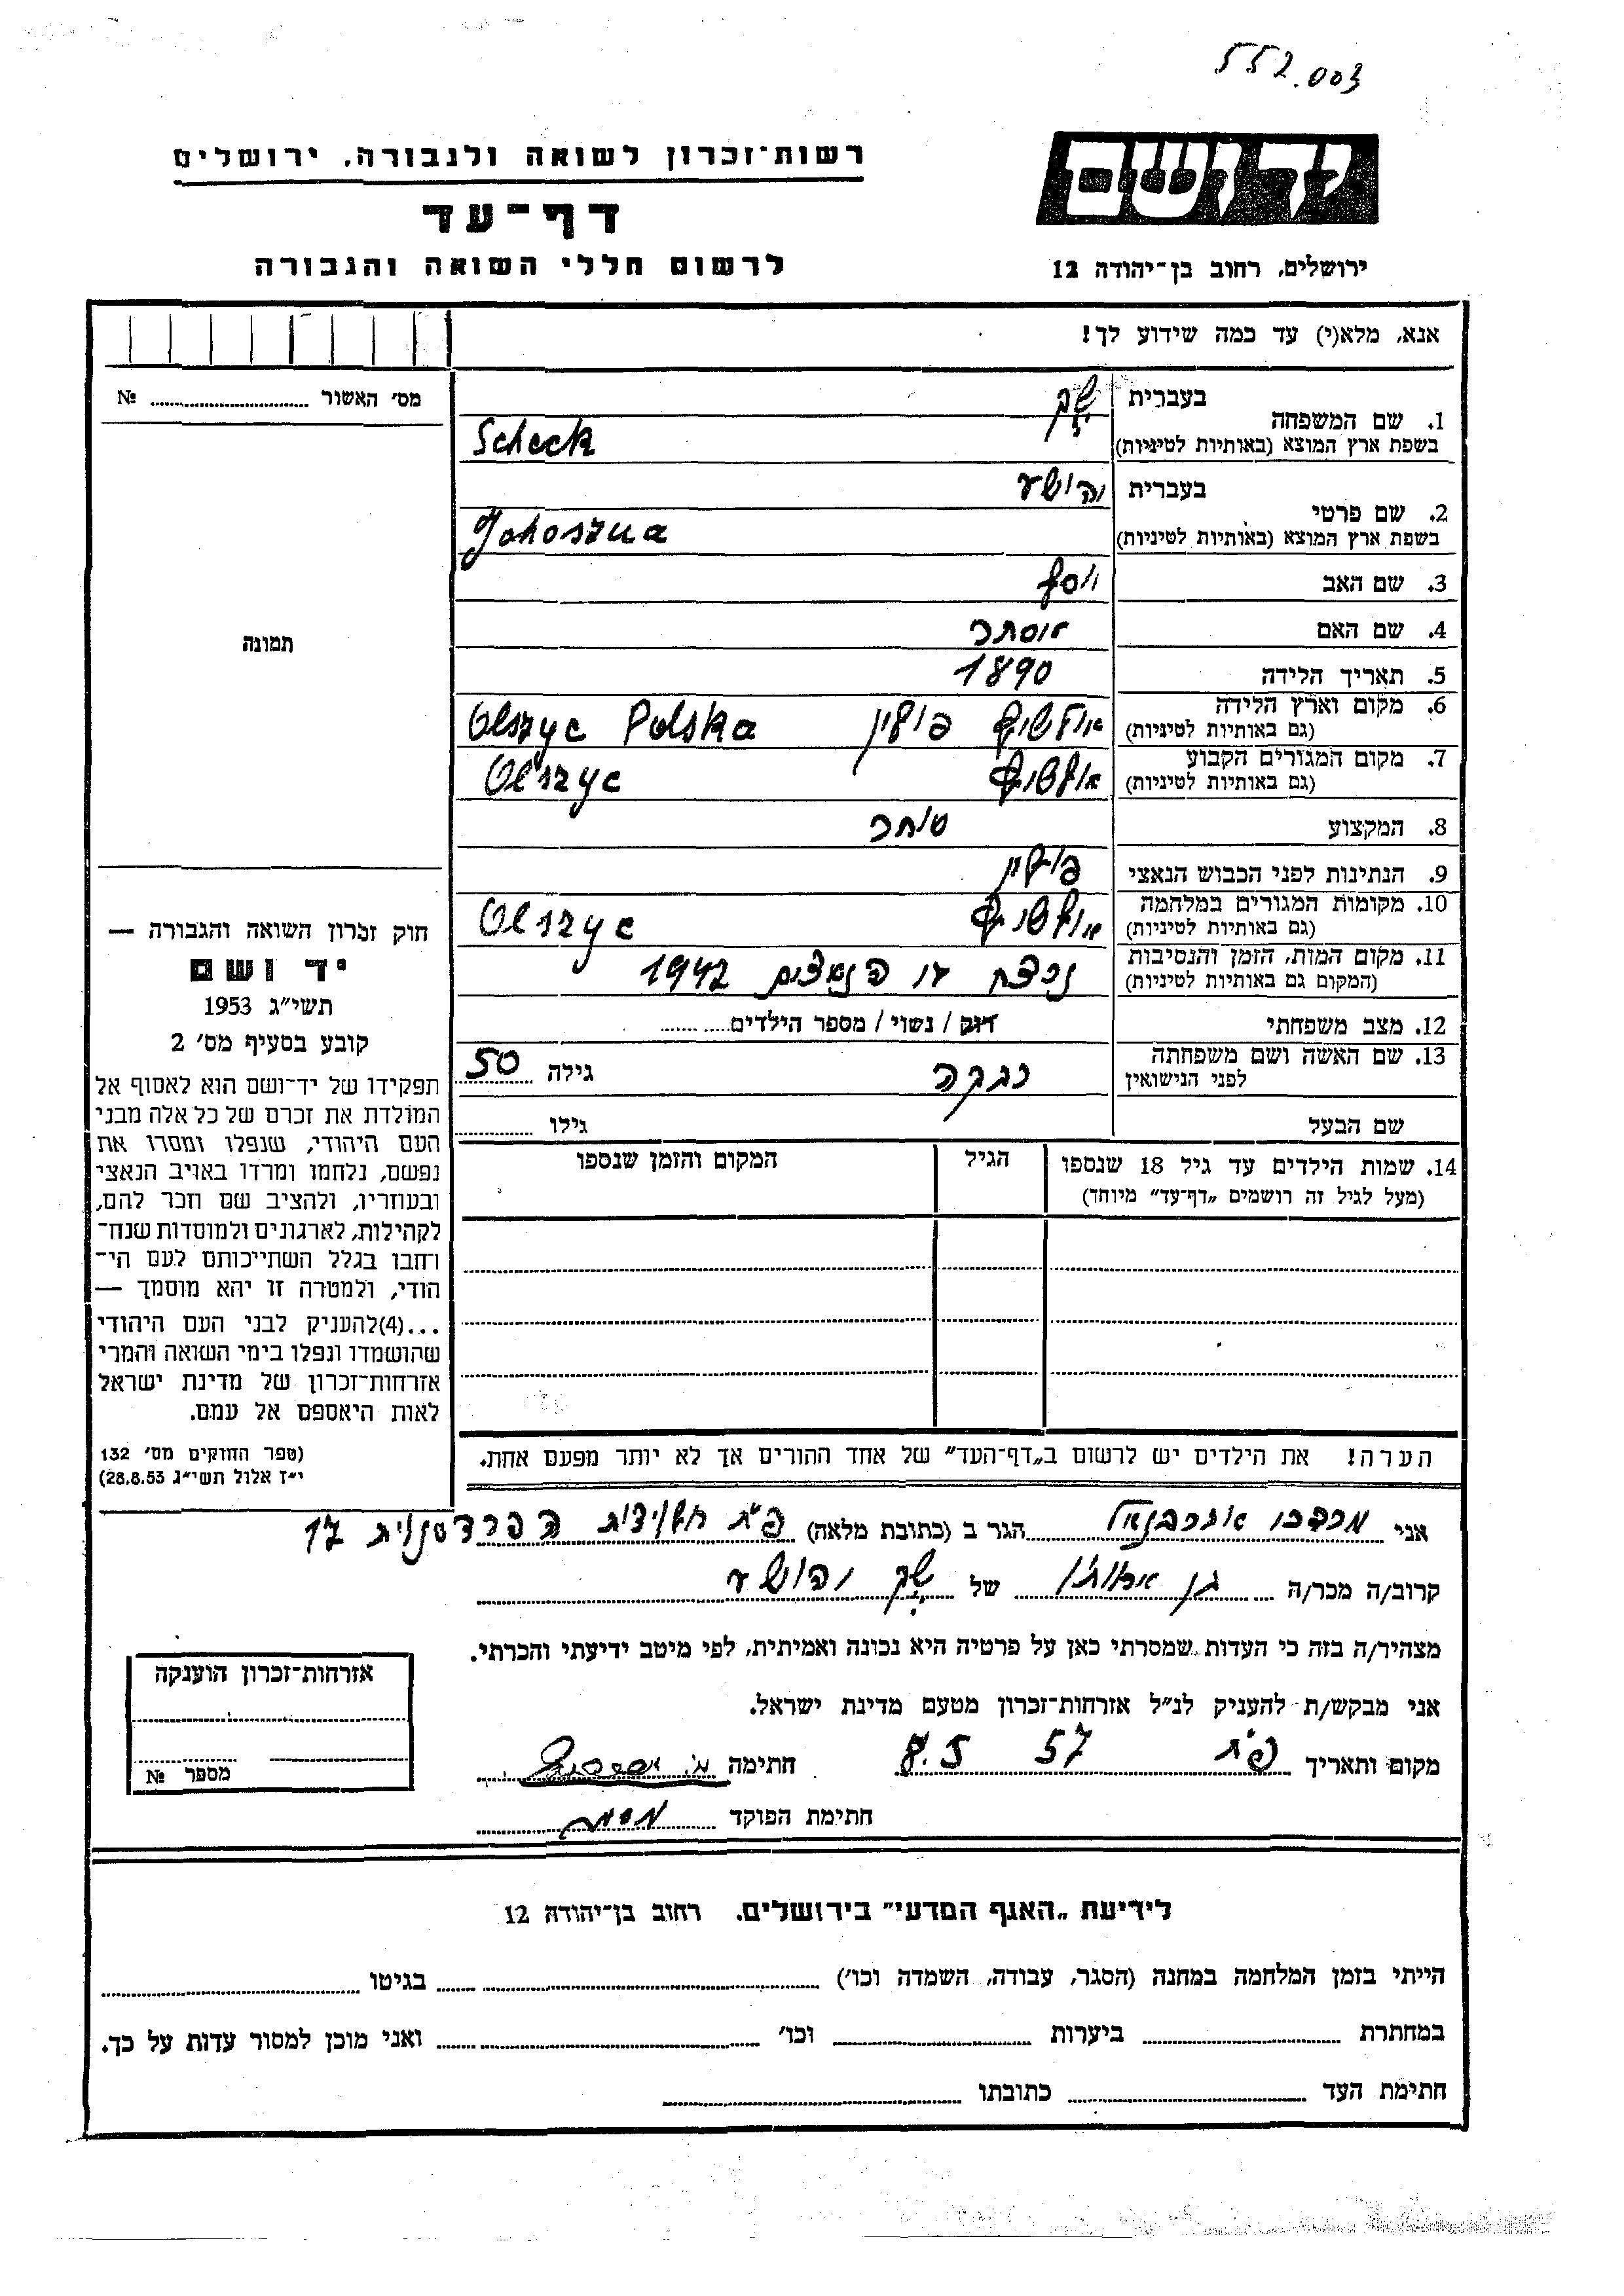 552.003
יד ושם
רשות־זכרון לשואה ולגבורה, ירושלים
דף־עד
לרשום חללי השואה והגבורה
ירושלים, רחוב בן־יהודה 12
אנא, מלא(י) עד כמה שידוע לך!
מס׳ האשור ........ №
1. שם המשפחה
בעברית שק
בשפת ארץ המוצא (באותיות לטיניות) Scheck
2. שם פרטי
בעברית יהושע
בשפת ארץ המוצא (באותיות לטיניות) Jehoszua
3. שם האב יוסף
4. שם האם אסתר
5. תאריך הלידה 1890
6. מקום וארץ הלידה
(גם באותיות לטיניות) אולשיץ פולין Olszyc Polska
7. מקום המגורים הקבוע
(גם באותיות לטיניות) אולשיץ Olszyc
8. המקצוע סוחר
9. הנתינות לפני הכבוש הנאצי פולין
10. מקומות המגורים במלחמה
(גם באותיות לטיניות) אולשיץ Olszyc
11. מקום המות, הזמן והנסיבות
(המקום גם באותיות לטיניות) נרצח ע״י הנאצים 1942
12. מצב משפחתי רווק / נשוי / מספר הילדים........
13. שם האשה ושם משפחתה
לפני הנישואין רבקה גילה 50
שם הבעל גילו ........
14. שמות הילדים עד גיל 18 שנספו
(מעל לגיל זה רושמים „דף־עד״ מיוחד)
הגיל
המקום והזמן שנספו
הערה! את הילדים יש לרשום ב„דף־העד״ של אחד ההורים אך לא יותר מפעם אחת.
תמונה
חוק זכרון השואה והגבורה —
יד ושם
תשי״ג 1953
קובע בסעיף מס׳ 2
תפקידו של יד־ושם הוא לאסוף אל
המולדת את זכרם של כל אלה מבני
העם היהודי, שנפלו ומסרו את
נפשם, נלחמו ומרדו באויב הנאצי
ובעוזריו, ולהציב שם וזכר להם,
לקהילות, לארגונים ולמוסדות שנח־
רחבו בגלל השתייכותם לעם הי־
הודי, ולמטרה זו יהא מוסמך —
...(4)להעניק לבני העם היהודי
שהושמדו ונפלו בימי השואה והמרי
אזרחות־זכרון של מדינת ישראל
לאות היאספם אל עמם.
(ספר החוקים מס׳ 132
י״ז אלול תשי״ג 28.8.53)
אני מרדכי אברבנאל הגר ב (כתובת מלאה) פ״ת הפרדסנית 17
קרוב/ה מכר/ה בן אחותו של שק יהושע
מצהיר/ה בזה כי העדות שמסרתי כאן על פרטיה היא נכונה ואמיתית, לפי מיטב ידיעתי והכרתי.
אני מבקש/ת להעניק לנ״ל אזרחות־זכרון מטעם מדינת ישראל.
מקום ותאריך פ״ת 8.5 57 חתימה
חתימת הפוקד
אזרחות־זכרון הוענקה
מספר №
לידיעת „האגף המדעי״ בירושלים, רחוב בן־יהודה 12
הייתי בזמן המלחמה במחנה (הסגר, עבודה, השמדה וכו׳) ........ בגיטו ........
במחתרת ........ ביערות ........ וכו׳ ........ ואני מוכן למסור עדות על כך.
חתימת העד ........ כתובתו ........